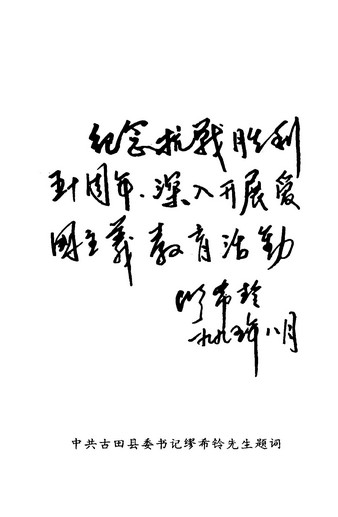 纪念抗战胜利
五十周年，深入开展爱
国主义教育活动
缪希铃
一九九五年八月
中共古田县委书记缪希铃先生题词